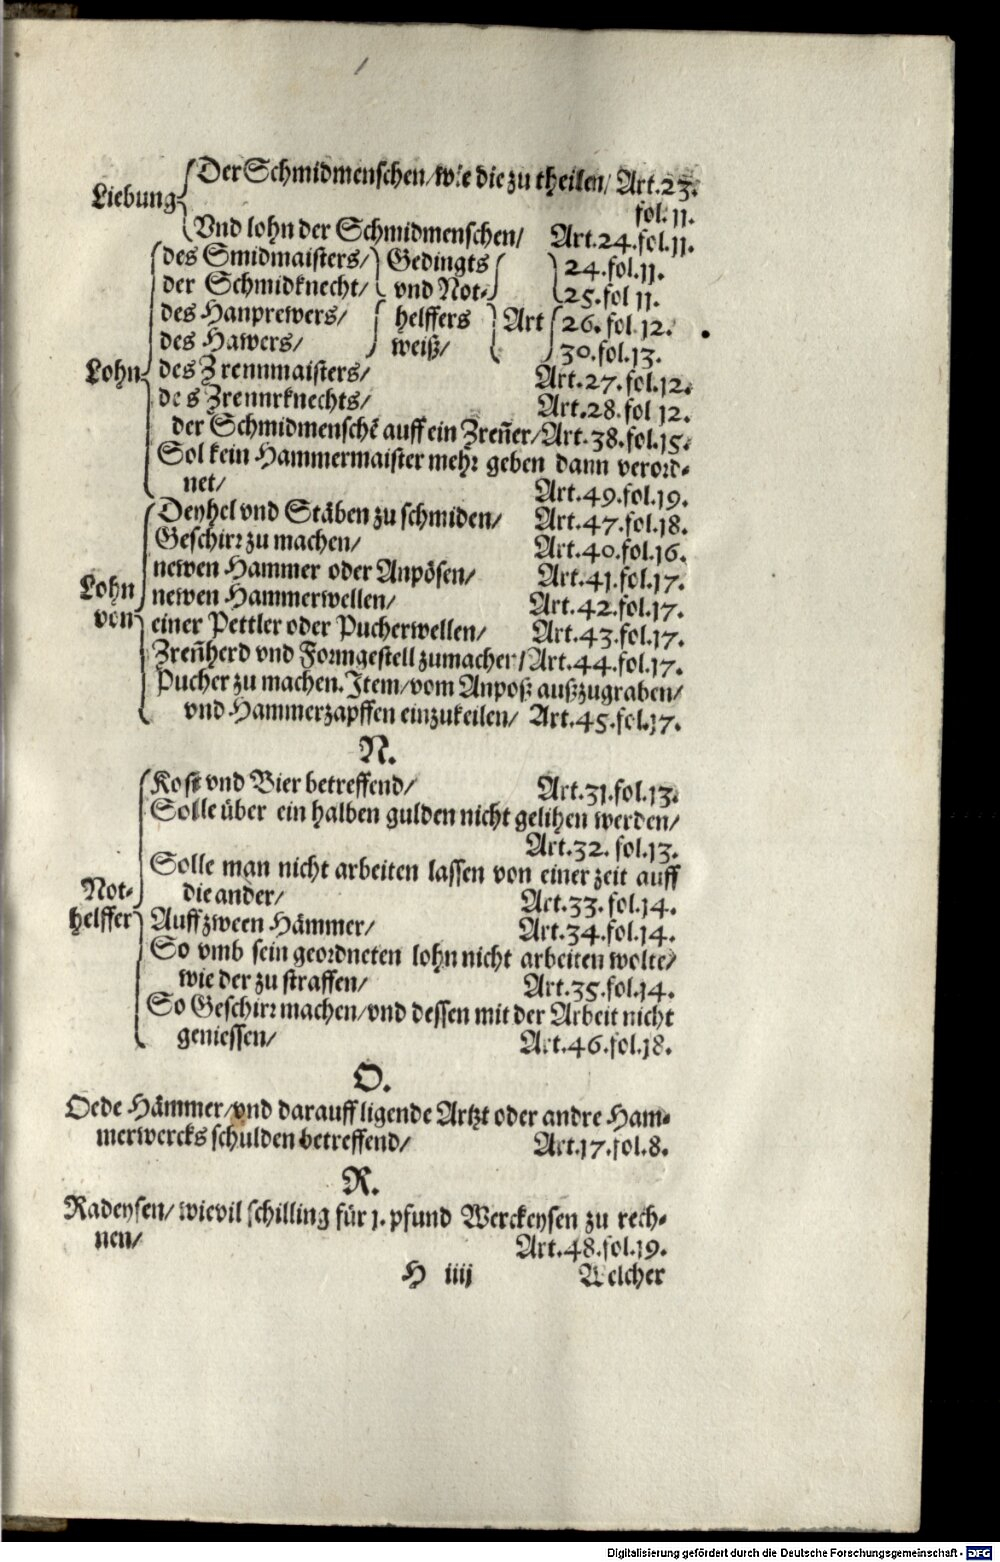 Der Schmidmenschen/wie die zu theilen/ Art.23.
Liebung
fol.11.
Vnd lohn der Schmidmenschen/ Art.24.fol.11.
des Smidmaisters/ Gedingts 24.fol.11.
der Schmidknecht/ vnd Not- 25.fol 11.
des Hanprewers/ helffers Art 26.fol.12.
des Hawers/ weiß/ 30.fol.13.
Lohn des Zrennmaisters/ Art.27.fol.12.
des Zrennrknechts/ Art.28.fol 12.
der Schmidmenschẽ auff ein Zren̄er/Art.38.fol.15.
Sol kein Hammermaister mehr geben dann verord-
net/ Art.49.fol.19.
Deyhel vnd Stäben zu schmiden/ Art.47.fol.18.
Geschirr zu machen/ Art.40.fol.16.
newen Hammer oder Anpösen/ Art.41.fol.17.
Lohn newen Hammerwellen/ Art.42.fol.17.
von einer Pettler oder Pucherwellen/ Art.43.fol.17.
Zren̄herd vnd Formgestell zumacher/Art.44.fol.17.
Pucher zu machen.Item/vom Anpoß außzugraben/
vnd Hammerzapffen einzukeilen/ Art.45.fol.17.
N.
Kost vnd Bier betreffend/ Art.31.fol.13.
Solle über ein halben gulden nicht gelihen werden/
Art.32. fol.13.
Solle man nicht arbeiten lassen von einer zeit auff
Not- die ander/ Art.33.fol.14.
helffer Auff zween Hämmer/ Art.34.fol.14.
So vmb sein geordneten lohn nicht arbeiten wolte/
wie der zu straffen/ Art.35.fol.14.
So Geschirr machen/vnd dessen mit der Arbeit nicht
geniessen/ Art.46.fol.18.
O.
Oede Hämmer/vnd darauff ligende Artzt oder andre Ham-
merwercks schulden betreffend/ Art.17.fol.8.
R.
Radeysen/ wievil schilling für 1.pfund Werckeysen zu rech-
nen/ Art.48.fol.19.
H iiij Welcher
Digitalisierung gefördert durch die Deutsche Forschungsgemeinschaft - DFG